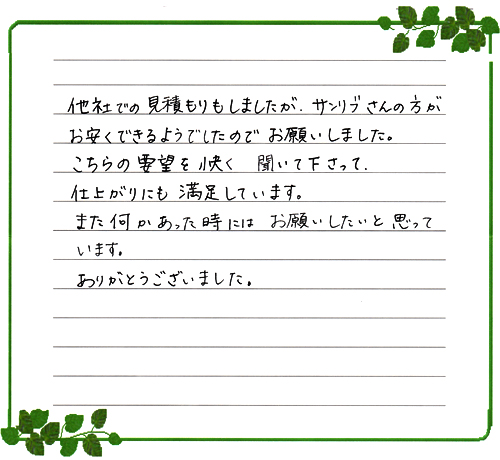 他社での見積もりもしましたが、サンリブさんの方が
お安くできるようでしたのでお願いしました。
こちらの要望を快く 聞いて下さって、
仕上がりにも満足しています。
また何かあった時には お願いしたいと思って
います。
ありがとうございました。